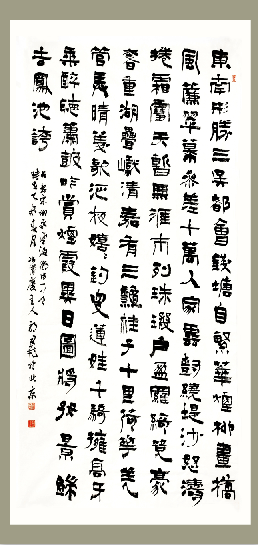 東南形勝三吳都會錢塘自繁華煙柳畫橋
風簾翠幕參差十萬人家雲樹繞堤沙怒濤
捲霜雪天塹無涯市列珠璣戶盈羅綺競豪
奢重湖疊巘清嘉有三秋桂子十里荷花羌
管弄晴菱歌泛夜嬉嬉釣叟蓮娃千騎擁高牙
乘醉聽簫鼓吟賞煙霞異日圖將好景歸
去鳳池誇